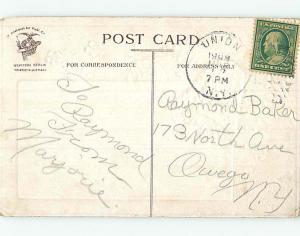 POST CARD
FOR CORRESPONDENCE
FOR ADDRESS ONLY
UNION
7 PM
N.Y.
To
Raymond
From
Marjorie.
Raymond Baker
173 North Ave
Owego
N.Y.